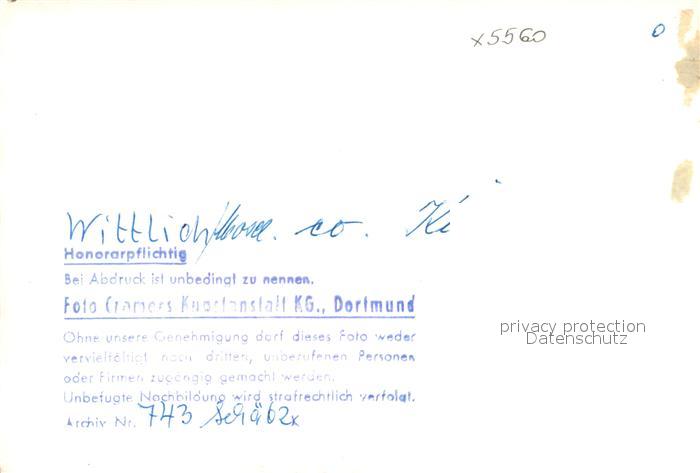 x5560
0
Wittlich/Mosel. co. Ki
Honorarpflichtig
Bei Abdruck ist unbedingt zu nennen.
Foto Cramers Kunstanstalt KG., Dortmund
privacy protection
Datenschutz
Ohne unsere Genehmigung darf dieses Foto weder
vervielfältigt noch dritten, unberufenen Personen
oder Firmen zugängig gemacht werden.
Unbefugte Nachbildung wird strafrechtlich verfolgt.
Archiv Nr. 743